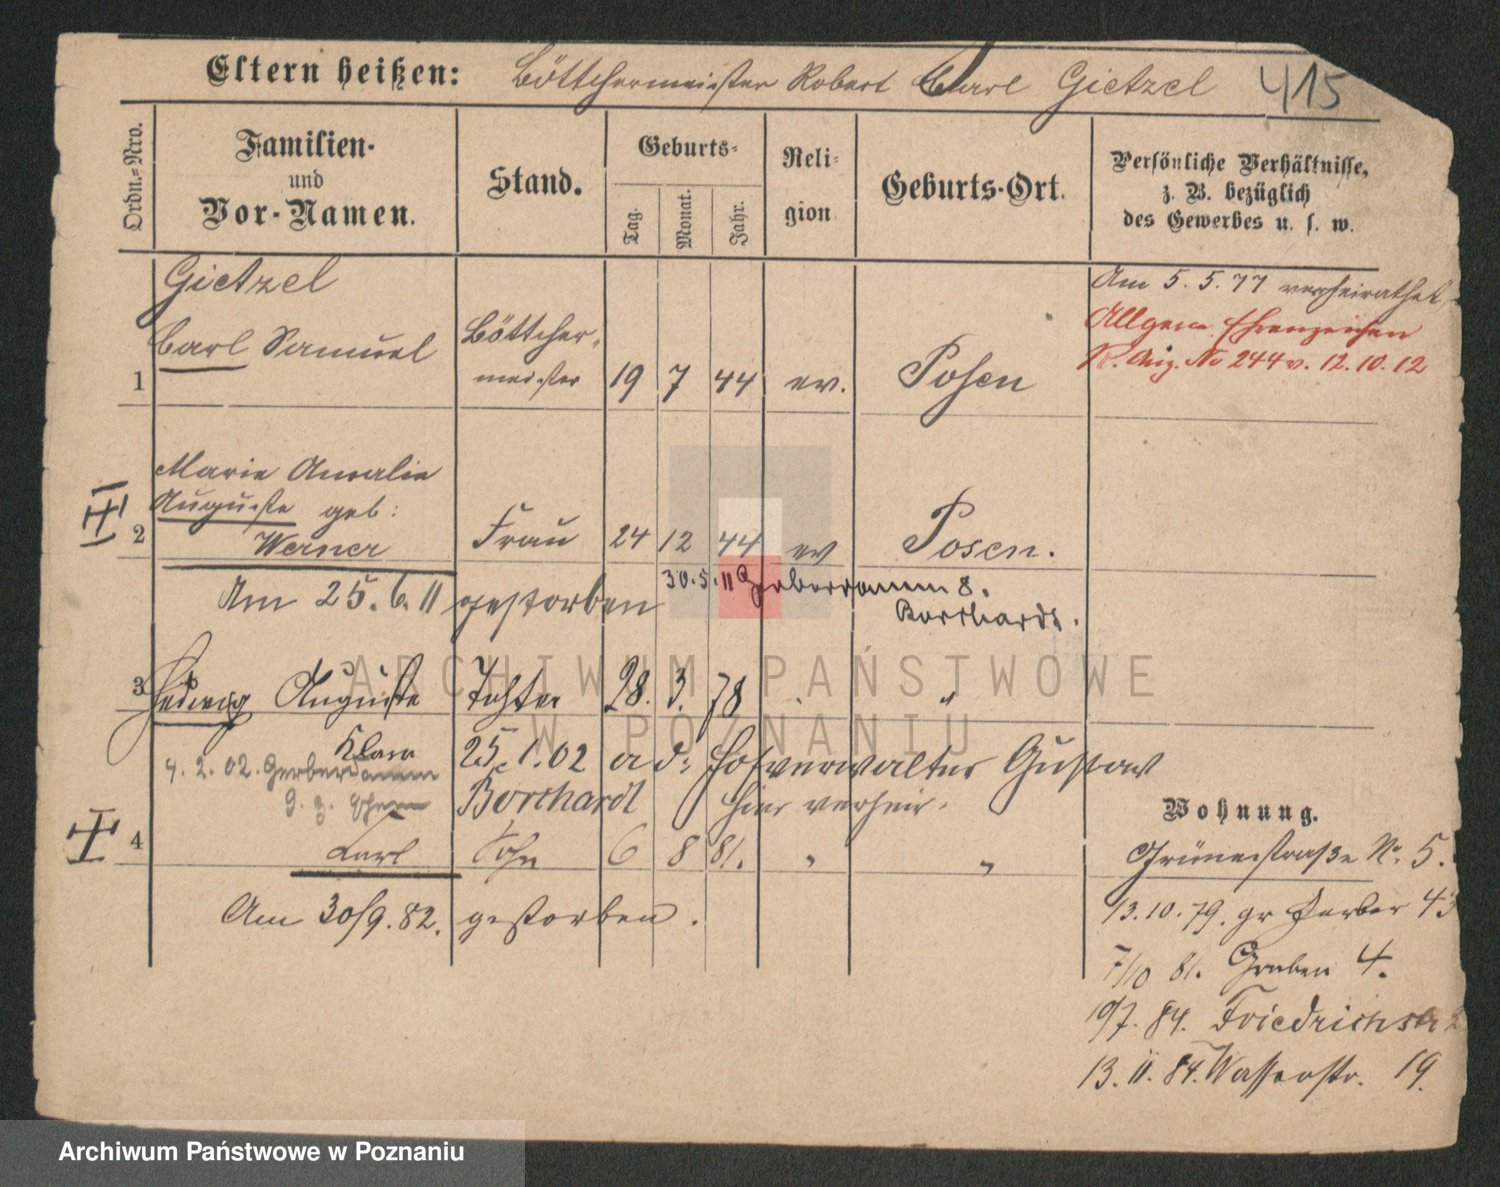 Eltern heißen: Böttchermeister Robert Carl Gietzel 415
Ordn.-Nro.
Familien-
und
Vor-Namen.
Stand.
Geburts-
Tag.
Monat.
Jahr.
Reli-
gion
Geburts-Ort.
Persönliche Verhältnisse,
z. B. bezüglich
des Gewerbes u. s. w.
Gietzel
Carl Samuel
1
Böttcher-
meister
19 7 44 ev. Posen
Am 5. 5. 77 verheirathet
Allgem Ehrenzeichen
R. Anz. No 244 v. 12. 10. 12
Marie Amalie
Auguste geb:
2 Werner
Frau 24 12 44 ev Posen.
Am 25. 6. 11 gestorben
30. 5. 11 Gerberdamm 8.
Borchardt.
3 Hedwig Auguste Tochter 28. 3. 78 "
Klara
25. 1. 02 a d: Hofverwalter Gustav
4. 2. 02. Gerberdamm
Borchardt hier verheir.
4 Karl Sohn 6 8 81. " "
Am 30/9. 82. gestorben.
Wohnung.
Grünestraße No 5.
13. 10. 79. gr Gerber 43
7/10 81. Graben 4.
19/7. 84. Friedrichstr
13. 11. 84. Wasserstr. 19.
ARCHIWUM PAŃSTWOWE
W POZNANIU
Archiwum Państwowe w Poznaniu